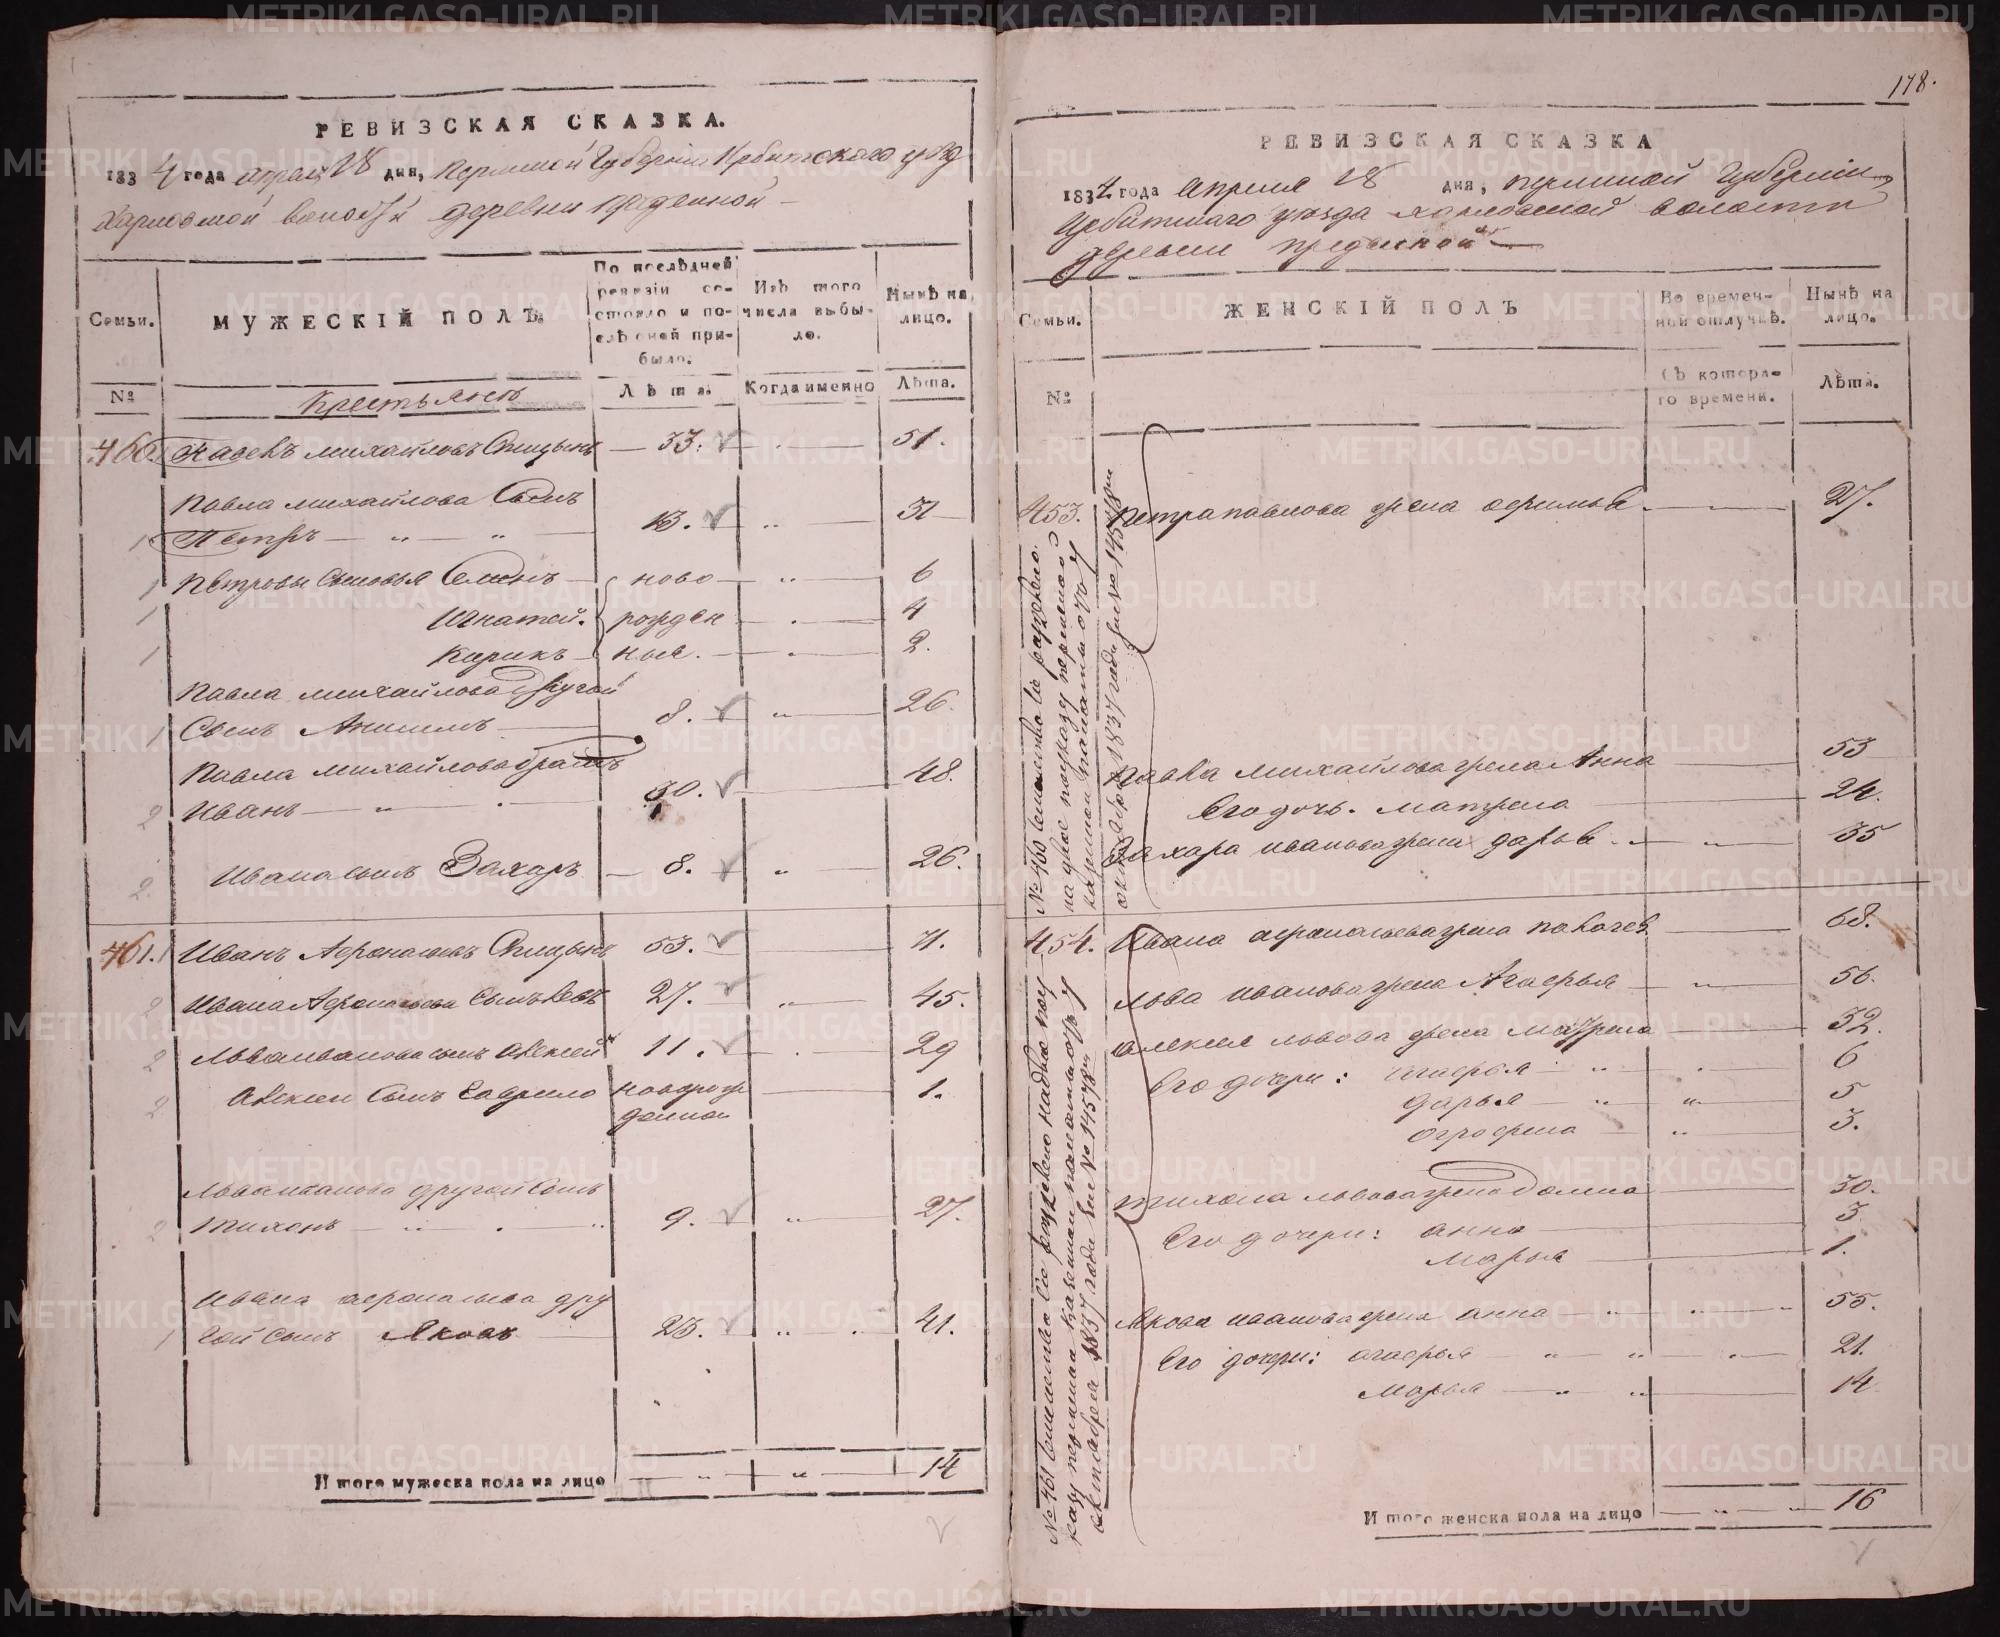 РЕВИЗСКАЯ СКАЗКА.
1834 года апреля 28 дня, пермской Губернии Ирбитского уезда
Харловской волости деревни
Семьи.
МУЖЕСКІЙ ПОЛЪ.
По послѣдней ревизіи состояло и послѣ оной прибыло.
Изъ того числа выбыло.
Нынѣ на лицо.
№
Крестьянъ
Лѣта.
Когда именно
Лѣта.
460. Павелъ михайловъ Спицынъ — 33. 51.
Павла михайлова Сынъ
1 Петръ — „ — „ — 13. „ 31
1 Петровы Сыновья Семенъ — ново — „ — 6
1 Игнатей. рожден — 4
1 Кирикъ — ные. — 2.
Павла михайлова другой
1 Сынъ Анисимъ — 8. „ 26.
Павла михайлова братъ
2 Иванъ — „ 30. — 48.
2 Ивана сынъ Захаръ — 8. „ 26.
461. Иванъ Афонасьевъ Спицынъ 53. — 71.
2 Ивана Афонасьева Сынъ Левъ 27. „ 45.
2 Льва иванова сынъ алексей 11. — 29
2 Алексея Сынъ Гаврило новорож — 1.
денной
Льва иванова другой Сынъ
2 тихонъ — „ 9. „ 27.
Ивана афонасьева дру
1 гой сынъ Яковъ 23. „ 41.
Итого мужеска пола на лицо — „ — „ — 14
178.
РЕВИЗСКАЯ СКАЗКА
1834 года апреля 28 дня, пермской Губернии
Ирбитского уезда харловской волости
деревни
Семьи.
ЖЕНСКІЙ ПОЛЪ
Во временной отлучкѣ.
Нынѣ на лицо.
№
Съ котораго времени.
Лѣта.
№ 460 семейство сіе раздѣлено
на двое по указу пермской
казенной палаты отъ 4
октября 1837 года за № 14578
453. Петра павлова жена — — 27.
Павла михайлова жена Анна — 53
Его дочь. матрена — 24.
Захара иванова жена дарья — „ — 35
№ 461 семейство сіе раздѣлено на двое по у
казу пермской казенной палаты отъ 4
октября 1837 года за № 14578
454. Ивана афонасьева жена — 68.
Льва иванова жена Агафья — „ — 56.
алексея львова жена матрена — 32.
Его дочери: агафья — „ — 6
дарья — „ „ — 5
огрофена — „ — 3.
тихона львова жена домна — 30.
Его дочери: анна — 3
марья — 1.
Якова иванова жена анна — „ „ „ 55.
Его дочери: агафья — „ „ „ 21.
марья — „ „ — 14.
Итого женска пола на лицо — „ — „ — 16